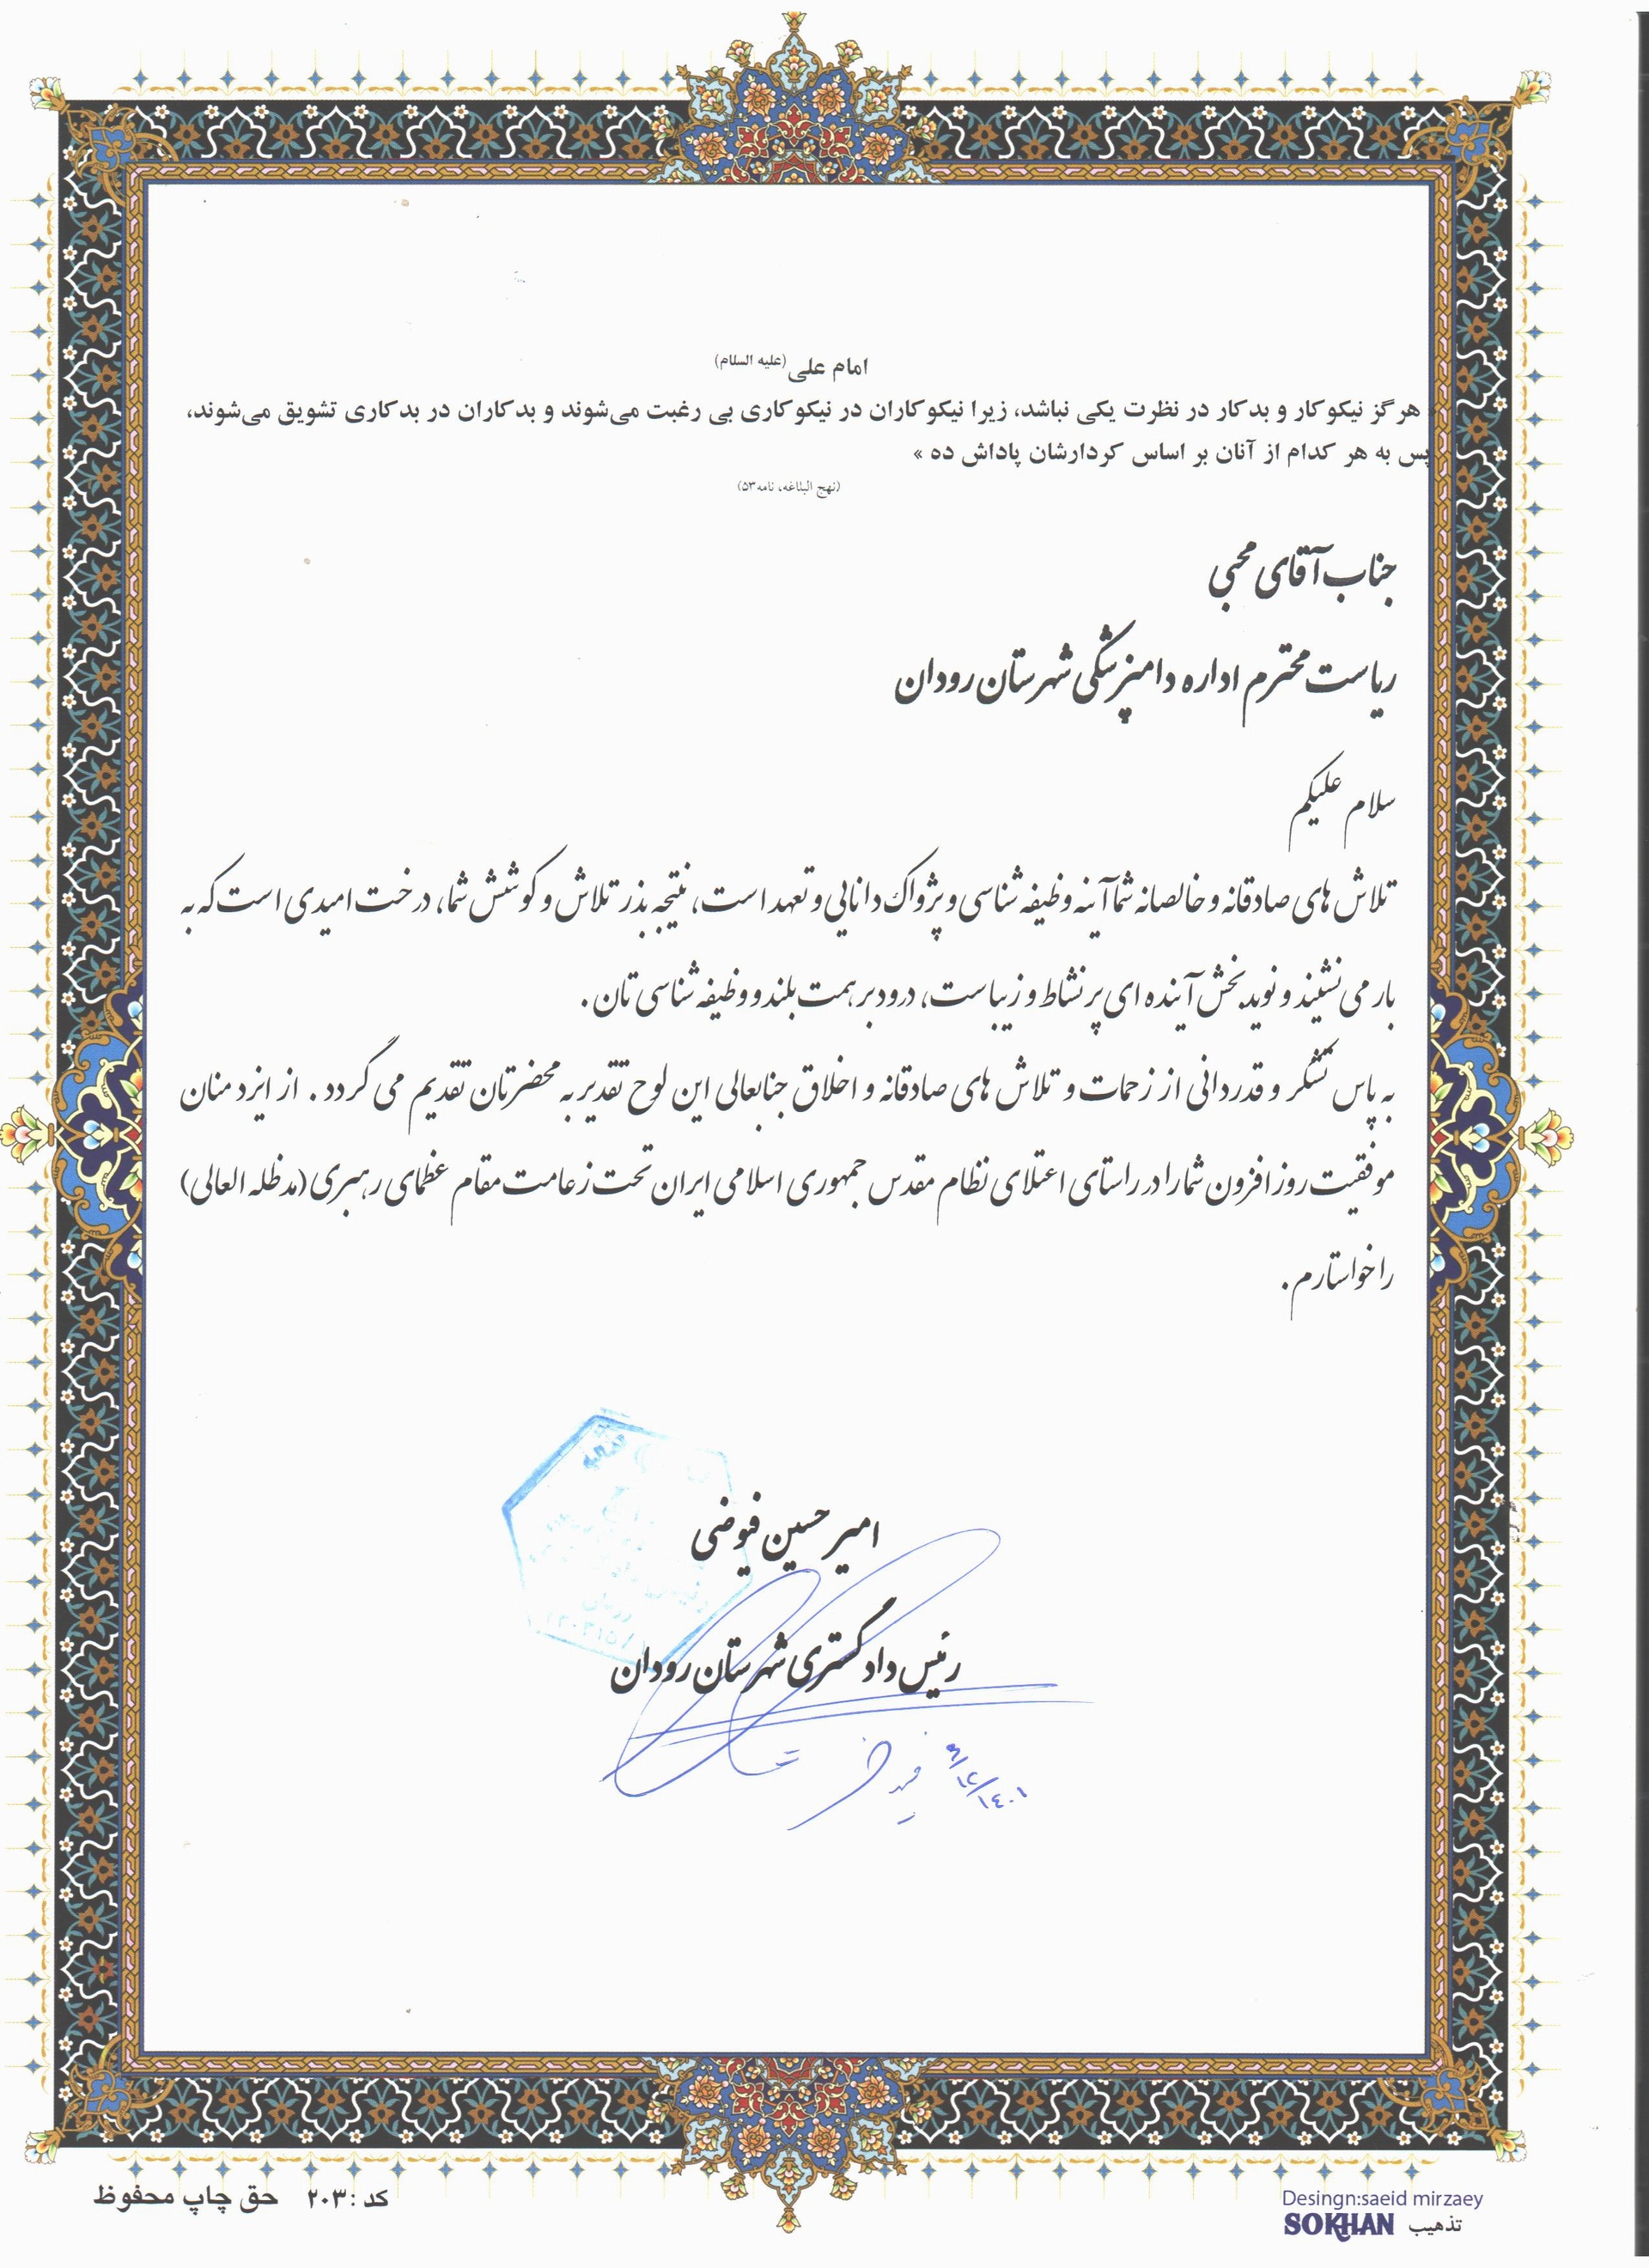 امام علی (علیه السلام)
« هرگز نیکوکار و بدکار در نظرت یکی نباشد، زیرا نیکوکاران در نیکوکاری بی رغبت می‌شوند و بدکاران در بدکاری تشویق می‌شوند،
پس به هر کدام از آنان بر اساس کردارشان پاداش ده »
(نهج البلاغه، نامه۵۳)
جناب آقای محبی
ریاست محترم اداره دامپزشکی شهرستان رودان
سلام علیکم
تلاش های صادقانه و خالصانه شما آینه وظیفه شناسی و پژواک دانایی و تعهد است، نتیجه بذر تلاش و کوشش شما، درخت امیدی است که به
بار می نشیند و نوید بخش آینده ای پر نشاط و زیباست، درود بر همت بلند و وظیفه شناسی تان .
به پاس تشکر و قدردانی از زحمات و تلاش های صادقانه و اخلاق جنابعالی این لوح تقدیر به محضرتان تقدیم می گردد . از ایزد منان
موفقیت روز افزون شما را در راستای اعتلای نظام مقدس جمهوری اسلامی ایران تحت زعامت مقام عظمای رهبری (مدظله العالی)
را خواستارم .
امیر حسین فیوضی
رئیس دادگستری شهرستان رودان
۱۴۰۱
کد : ۲۰۳ حق چاپ محفوظ
Desingn:saeid mirzaey
SOKHAN تذهیب